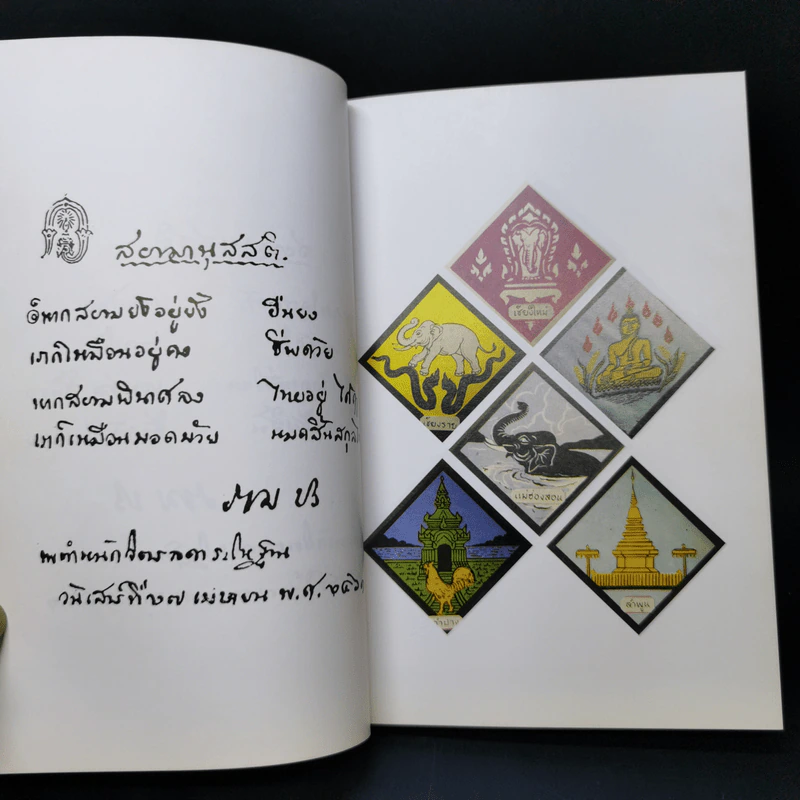 สยามานุสสติ.
หากสยามยังอยู่ยั้ง ยืนยง
เราก็เหมือนอยู่คง ชีพด้วย
หากสยามพินาศลง ไทยอยู่
เราก็เหมือนมอดม้วย หมดสิ้นสกุล
ราม ปร
วันเสาร์ที่ ๒๗ เมษายน พ.ศ. ๒๔๖๑
เชียงใหม่
เชียงราย
แม่ฮ่องสอน
ลำปาง
ลำพูน